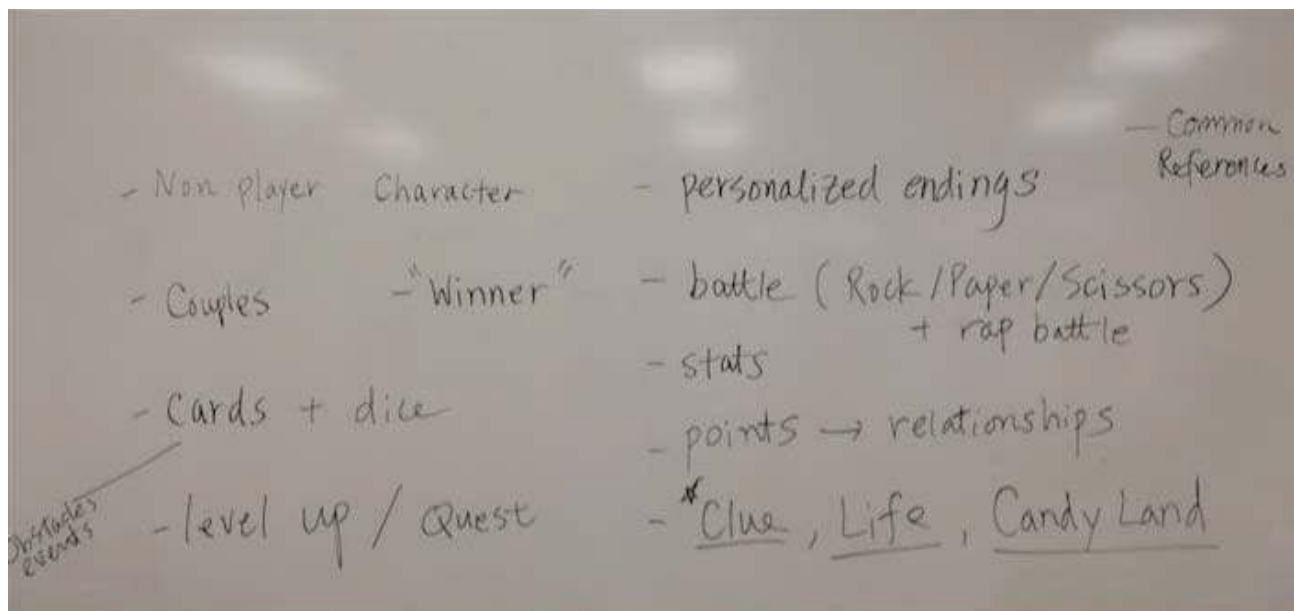 - Non player Character
- Couples - "Winner"
- Cards + dice
Obstacles
events
- level up / Quest
- personalized endings
- battle (Rock/Paper/Scissors)
+ rap battle
- stats
- points → relationships
- *Clue, Life, Candy Land
- Common
References